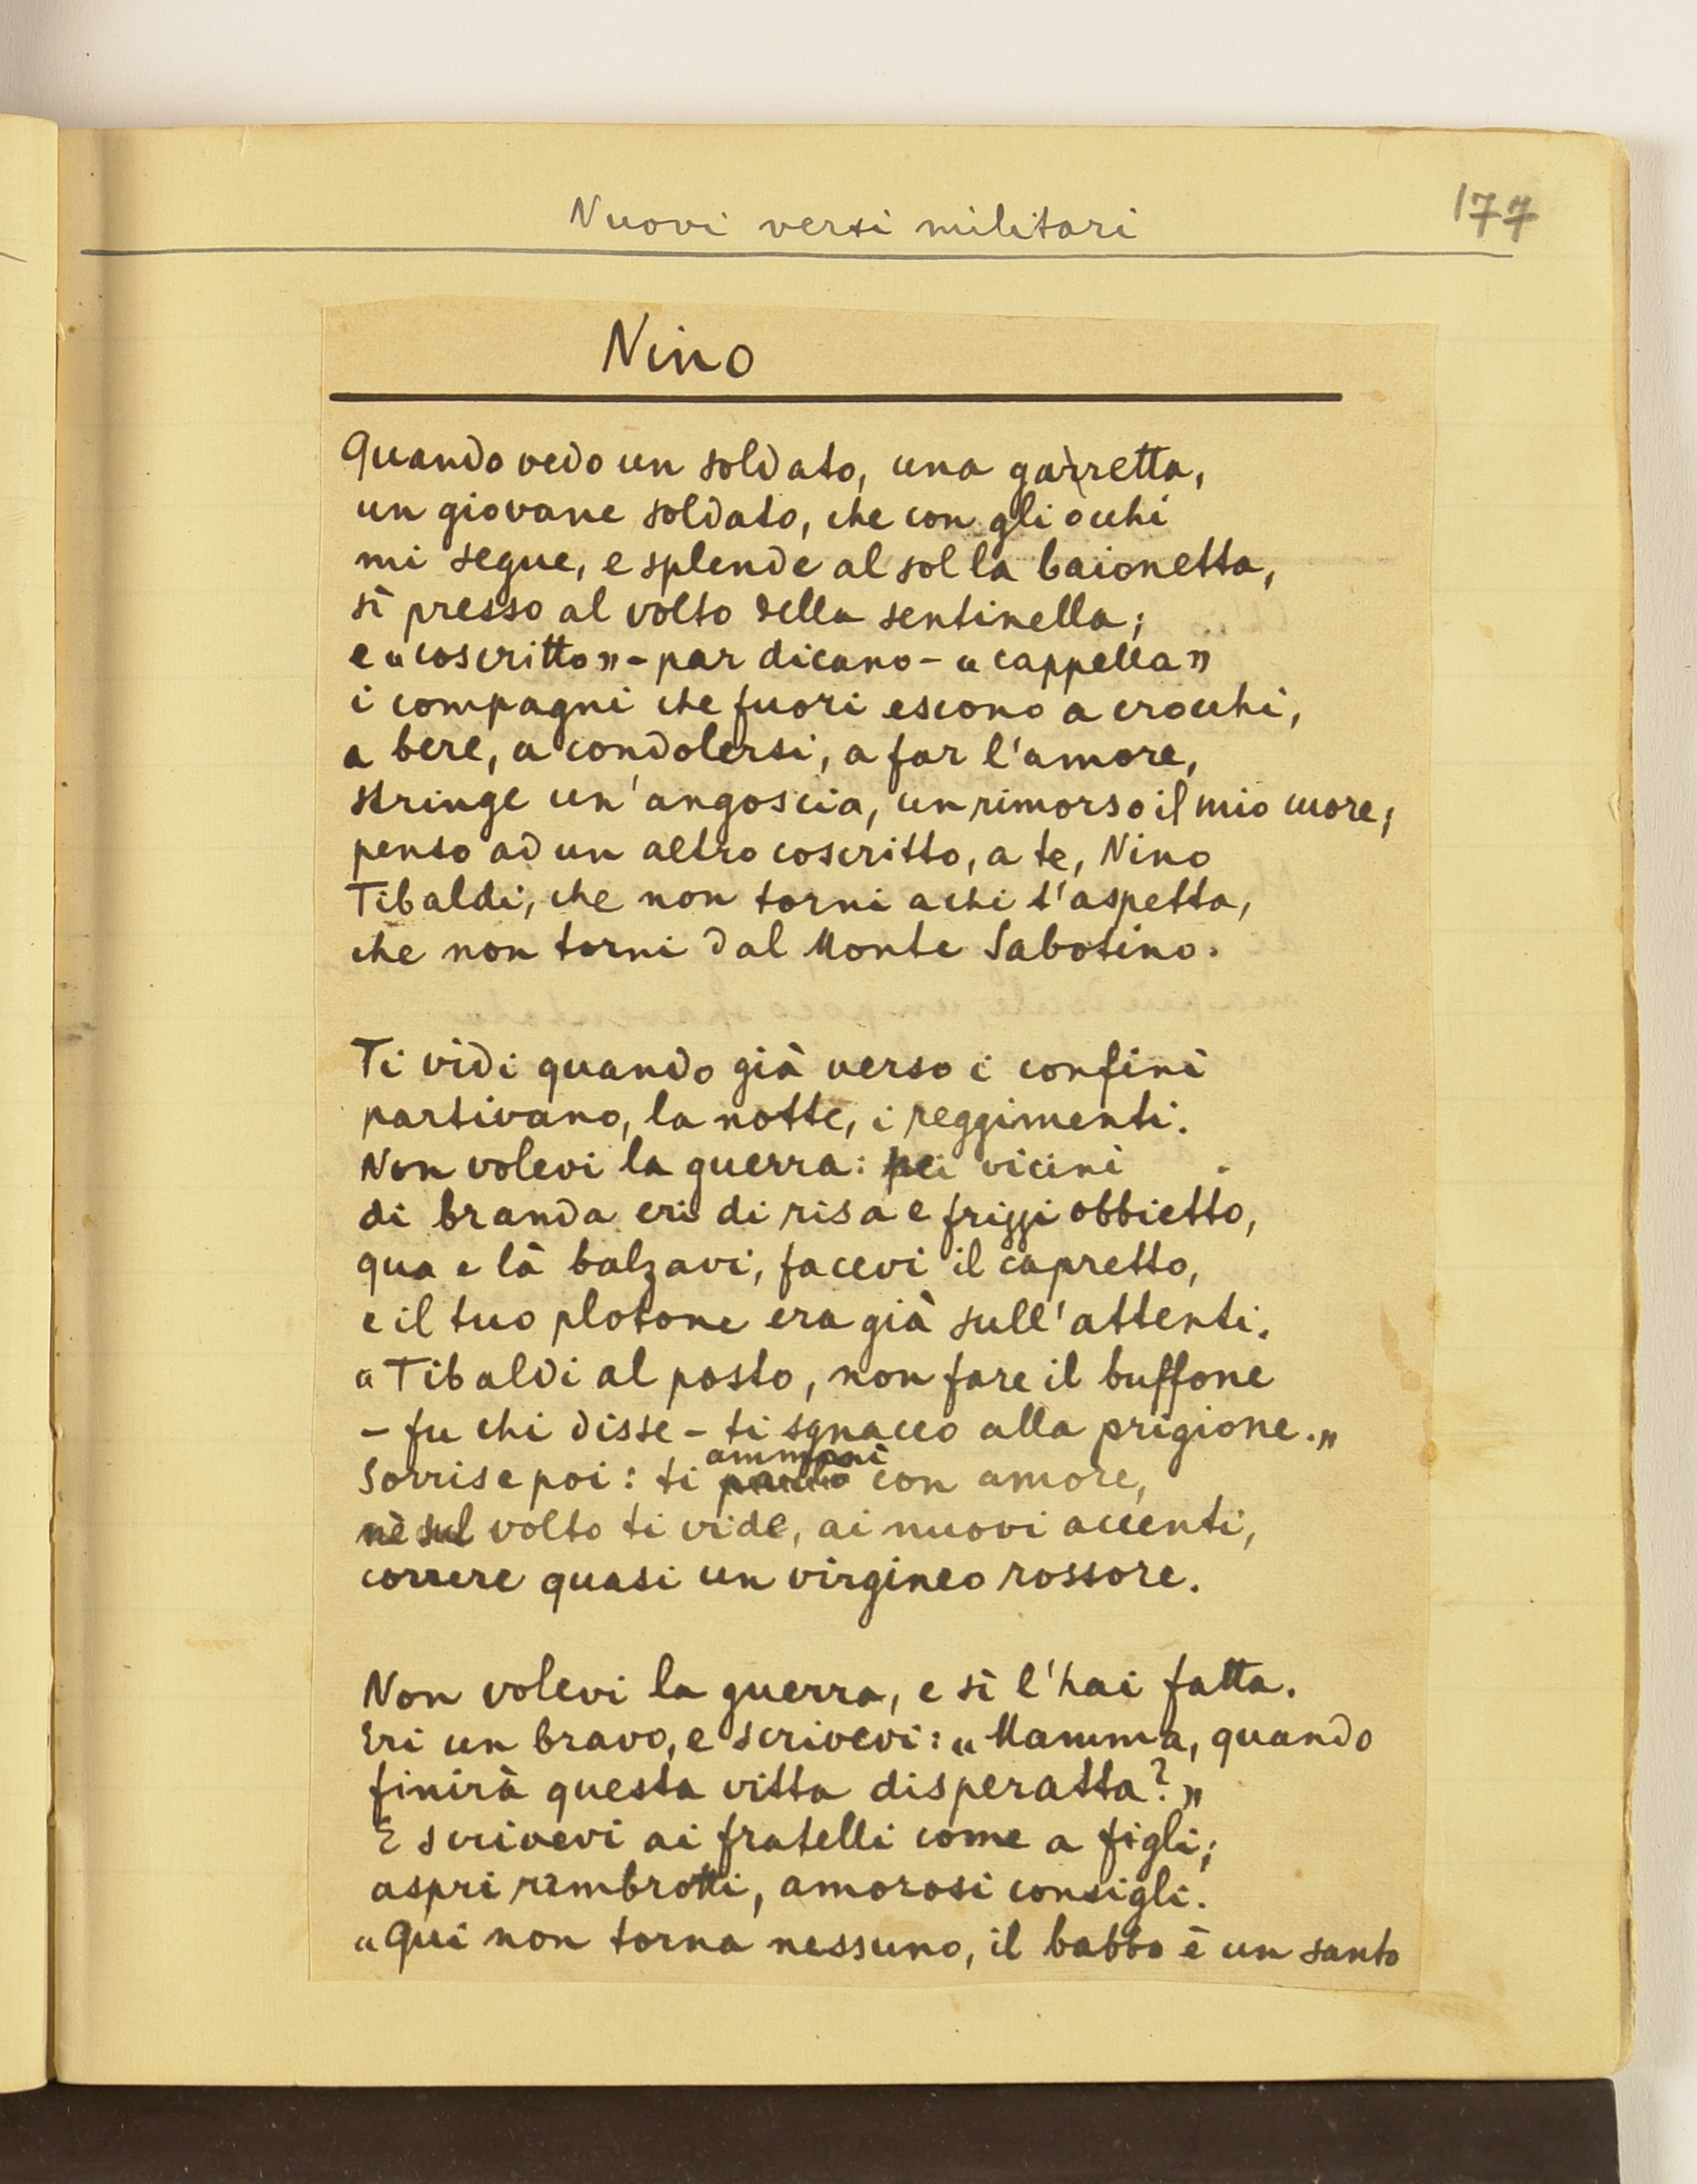 Nuovi versi militari
177
Nino
Quando vedo un soldato, una garretta,
un giovane soldato, che con gli occhi
mi segue, e splende al sol la baionetta,
sì presso al volto della sentinella;
e „coscritto” - par dicano - „cappella”
i compagni che fuori escono a crocchi,
a bere, a condolersi, a far l'amore,
stringe un'angoscia, un rimorso il mio cuore;
penso ad un altro coscritto, a te, Nino
Tibaldi, che non torni a chi t'aspetta,
che non torni dal Monte Sabotino.
Ti vidi quando già verso i confini
partivano, la notte, i reggimenti.
Non volevi la guerra: pei vicini
di branda eri di risa e frizzi obbietto,
qua e là balzavi, facevi il capretto,
e il tuo plotone era già sull'attenti.
„Tibaldi al posto, non fare il buffone
- fu chi disse - ti sgnacco alla prigione.”
ammonì
Sorrise poi: ti con amore,
nè sul volto ti vide, ai nuovi accenti,
correre quasi un virgineo rossore.
Non volevi la guerra, e sì l'hai fatta.
Eri un bravo, e scrivevi: „Mamma, quando
finirà questa vitta disperatta?”
E scrivevi ai fratelli come a figli;
aspri rimbrotti, amorosi consigli.
„Qui non torna nessuno, il babbo è un santo